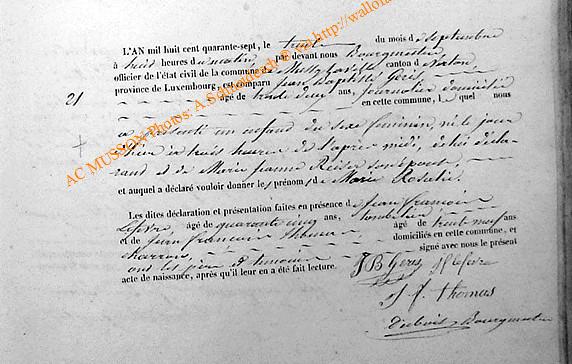 L'AN mil huit cent quarante-sept, le trente du mois de septembre
à huit heures du matin par devant nous Bourgmestre,
officier de l'état civil de la commune de Mussy-la-Ville canton de Virton,
province de Luxembourg, est comparu Jean Baptiste Géris
21
âgé de trente deux ans, journalier domicilié
en cette commune, lequel nous
a présenté un enfant du sexe féminin, né le jour
d'hier à trois heures de l'après midi, de lui décla-
rant et de Marie Jeanne son épouse
et auquel a déclaré vouloir donner les prénoms de Marie Rosalie.
Les dites déclaration et présentation faites en présence de Jean François
Lefèvre, âgé de quarante cinq ans,
et de Jean François Thomas âgé de trente neuf ans
charron, domiciliés en cette commune, et
ont les père et témoins signé avec nous le présent
acte de naissance, après qu'il leur en a été fait lecture.
JB Géris J Lefèvre
J. f. thomas
Dubois, Bourgmestre
AC MUSSON Photos: A.